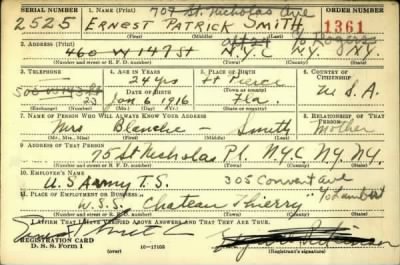 SERIAL NUMBER 1. NAME (Print) 707 St. Nicholas Ave ORDER NUMBER
2525 ERNEST PATRICK SMITH 1361
(First) (Middle) (Last)
2. ADDRESS (Print)
460 W 147 St N.Y.C. N.Y. N.Y.
(Number and street or R. F. D. number) (Town) (County) (State)
3. TELEPHONE 4. AGE IN YEARS 5. PLACE OF BIRTH 6. COUNTRY OF CITIZENSHIP
24 yrs Ft Pierce
DATE OF BIRTH (Town or county)
Jan 6, 1916 Fla. U.S.A.
(Exchange) (Number) (Mo.) (Day) (Yr.) (State or country)
7. NAME OF PERSON WHO WILL ALWAYS KNOW YOUR ADDRESS 8. RELATIONSHIP OF THAT PERSON
Mrs Blanche - Smith Mother
(Mr., Mrs., Miss) (First) (Middle) (Last)
9. ADDRESS OF THAT PERSON
75 St Nicholas Pl. N.Y.C. N.Y. N.Y.
(Number and street or R. F. D. number) (Town) (County) (State)
10. EMPLOYER'S NAME
U.S Army T.S. 305 Convent ave
11. PLACE OF EMPLOYMENT OR BUSINESS
U.S.S. Chateau Thierry
(Number and street or R. F. D. number) (Town) (County) (State)
I AFFIRM THAT I HAVE VERIFIED ABOVE ANSWERS AND THAT THEY ARE TRUE.
REGISTRATION CARD
D. S. S. Form 1 (over) 16-17105